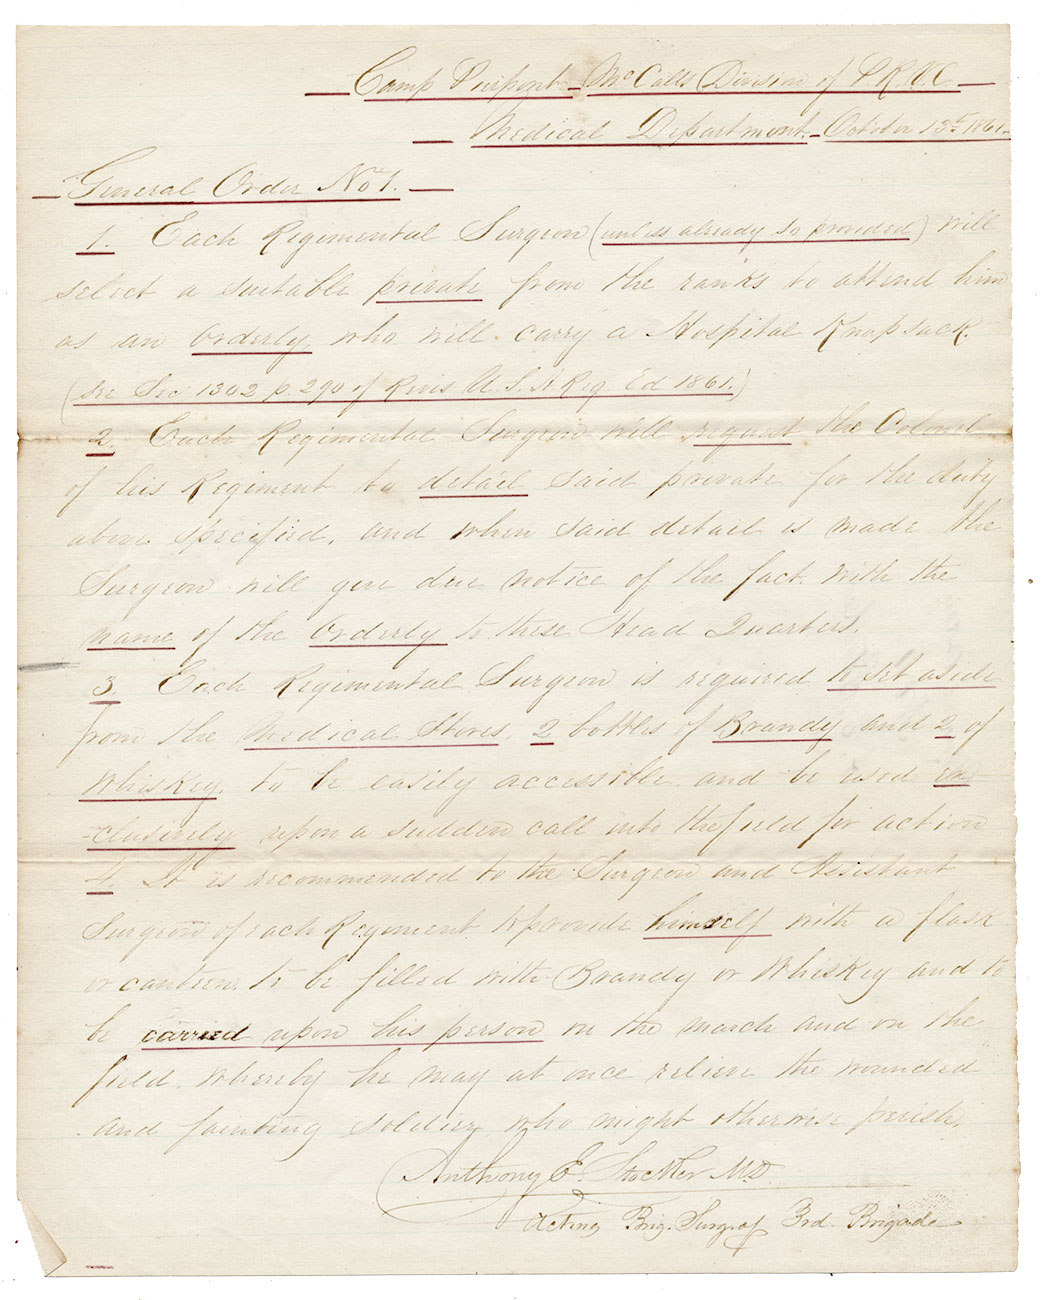 Camp Pierpont - McCalls Division of P.R.V.C
Medical Department. - October 13th 1861.
General Order No 1.
1. Each Regimental Surgeon (unless already so provided) will
select a suitable private from the ranks to attend him
as an Orderly who will carry a Hospital Knapsack.
(see Sec 1302 p. 290 of Revis U. S. A. Reg. Ed 1861.)
2. Each Regimental Surgeon will request the Colonel
of his Regiment to detail said private for the duty
above specified, and when said detail is made the
Surgeon will give due notice of the fact with the
name of the Orderly to these Head Quarters.
3. Each Regimental Surgeon is required to set aside
from the Medical Stores, 2 bottles of Brandy and 2 of
Whiskey, to be easily accessible and be used ex
-clusively upon a sudden call into the field for action
4. It is recommended to the Surgeon and Assistant
Surgeon of each Regiment to provide himself with a flask
or canteen to be filled with Brandy or Whiskey and to
be carried upon his person on the march and on the
field. Whereby he may at once relieve the wounded
and fainting soldier who might otherwise perish.
Anthony E. Stocker MD
Acting Brig. Surg. of 3rd. Brigade